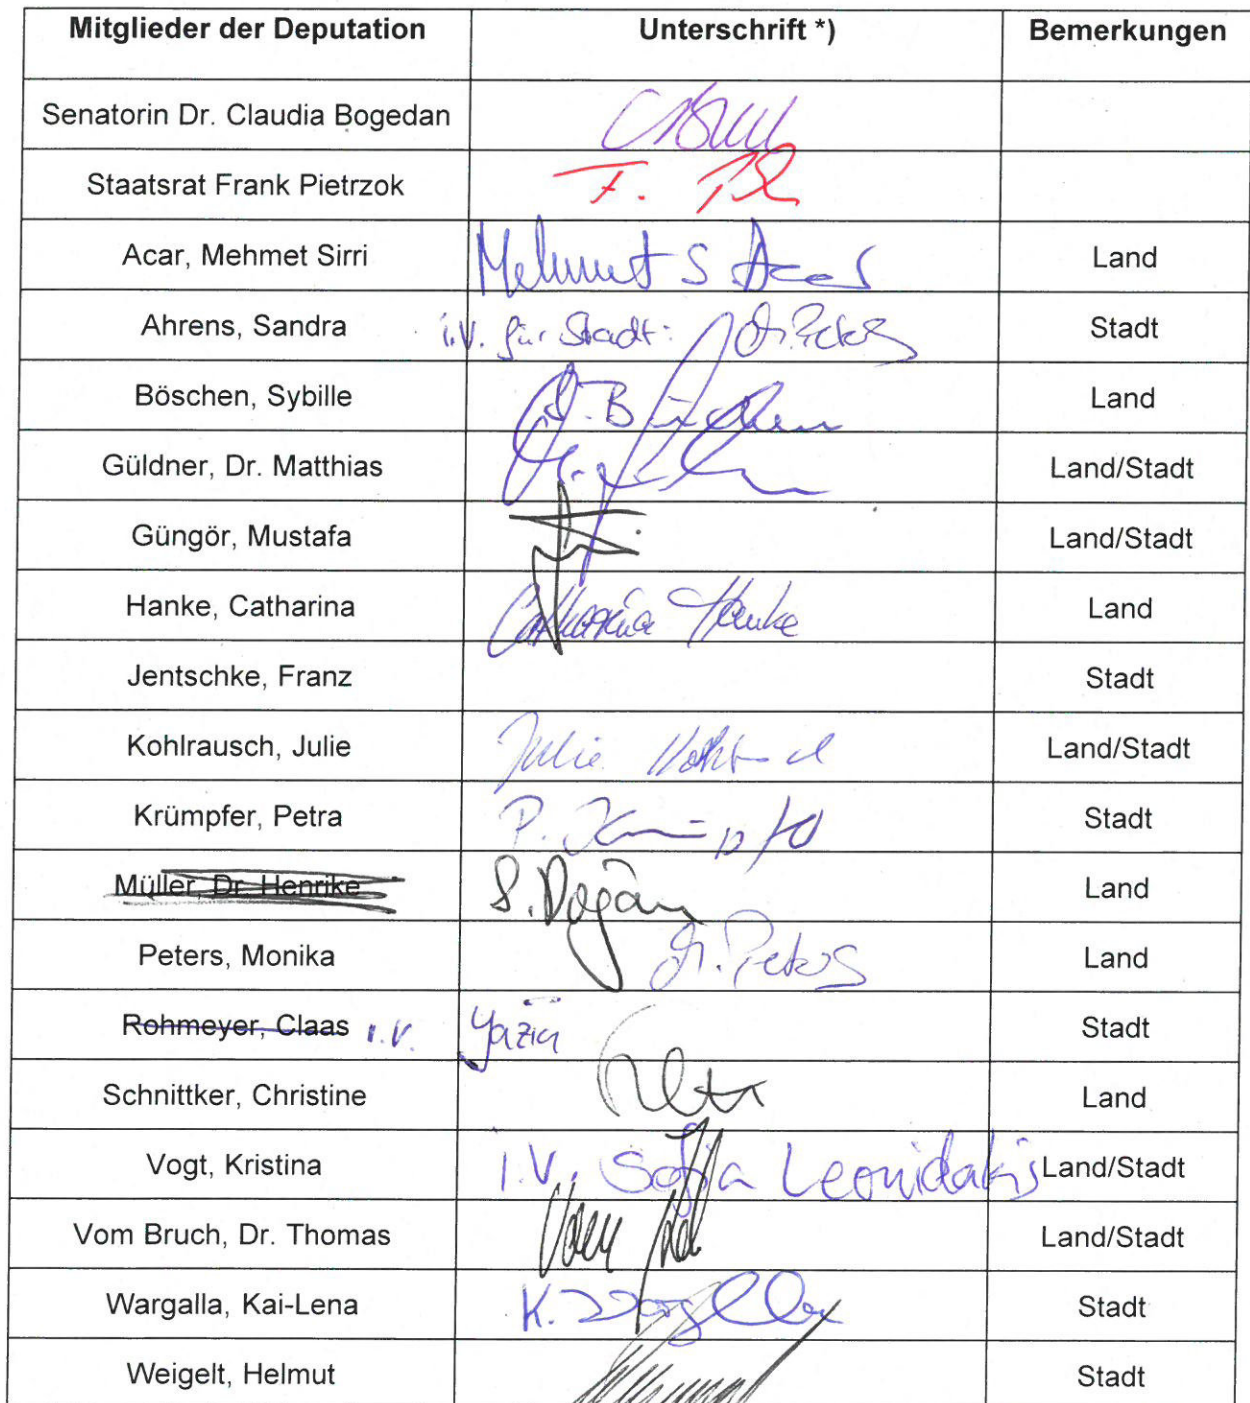 Mitglieder der Deputation Unterschrift *) Bemerkungen
Senatorin Dr. Claudia Bogedan
Staatsrat Frank Pietrzok F.
Acar, Mehmet Sirri Mehmet S Acar Land
Ahrens, Sandra i.V. für Stadt: M. Peters Stadt
Böschen, Sybille S. Böschen Land
Güldner, Dr. Matthias Land/Stadt
Güngör, Mustafa Land/Stadt
Hanke, Catharina Catharina Hanke Land
Jentschke, Franz Stadt
Kohlrausch, Julie Julie Kohlrausch Land/Stadt
Krümpfer, Petra P. Krümpfer Stadt
Müller, Dr. Henrike S. Dogan Land
Peters, Monika M. Peters Land
Rohmeyer, Claas i.V. Yazici Stadt
Schnittker, Christine Land
Vogt, Kristina i.V. Sofia Leonidakis Land/Stadt
Vom Bruch, Dr. Thomas vom Bruch Land/Stadt
Wargalla, Kai-Lena K. Wargalla Stadt
Weigelt, Helmut Stadt